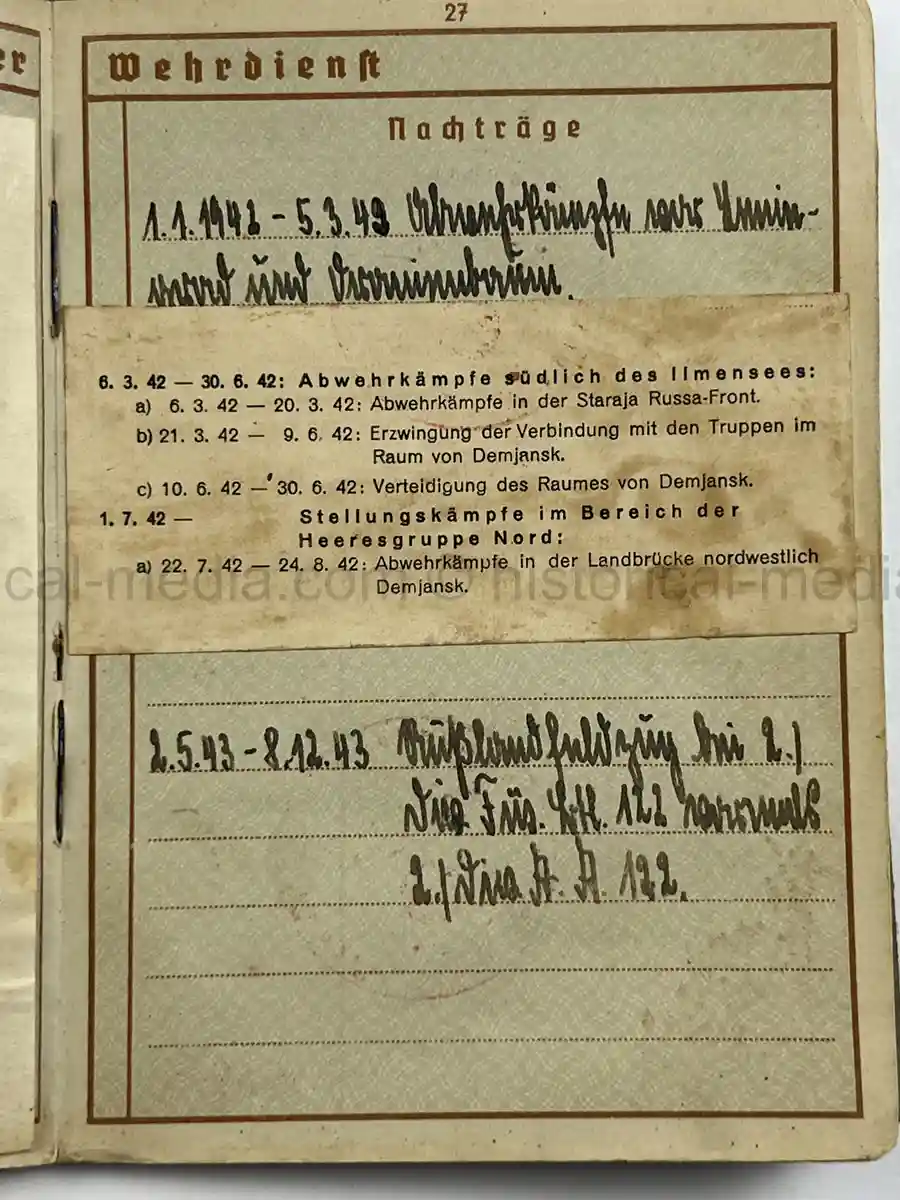 27
er
Wehrdienst
Nachträge
1.1.1942 - 5.3.42 Abwehrkämpfe vor Lenin-
grad und Oranienbaum.
6. 3. 42 — 30. 6. 42: Abwehrkämpfe südlich des Ilmensees:
a) 6. 3. 42 — 20. 3. 42: Abwehrkämpfe in der Staraja Russa-Front.
b) 21. 3. 42 — 9. 6. 42: Erzwingung der Verbindung mit den Truppen im
Raum von Demjansk.
c) 10. 6. 42 — 30. 6. 42: Verteidigung des Raumes von Demjansk.
1. 7. 42 — Stellungskämpfe im Bereich der
Heeresgruppe Nord:
a) 22. 7. 42 — 24. 8. 42: Abwehrkämpfe in der Landbrücke nordwestlich
cal-media.com © historical-media
Demjansk.
2.5.43 - 8.12.43 Rußlandfeldzug bei 2./
Füs. Btl. 122 vormals
2./ A. A. 122.